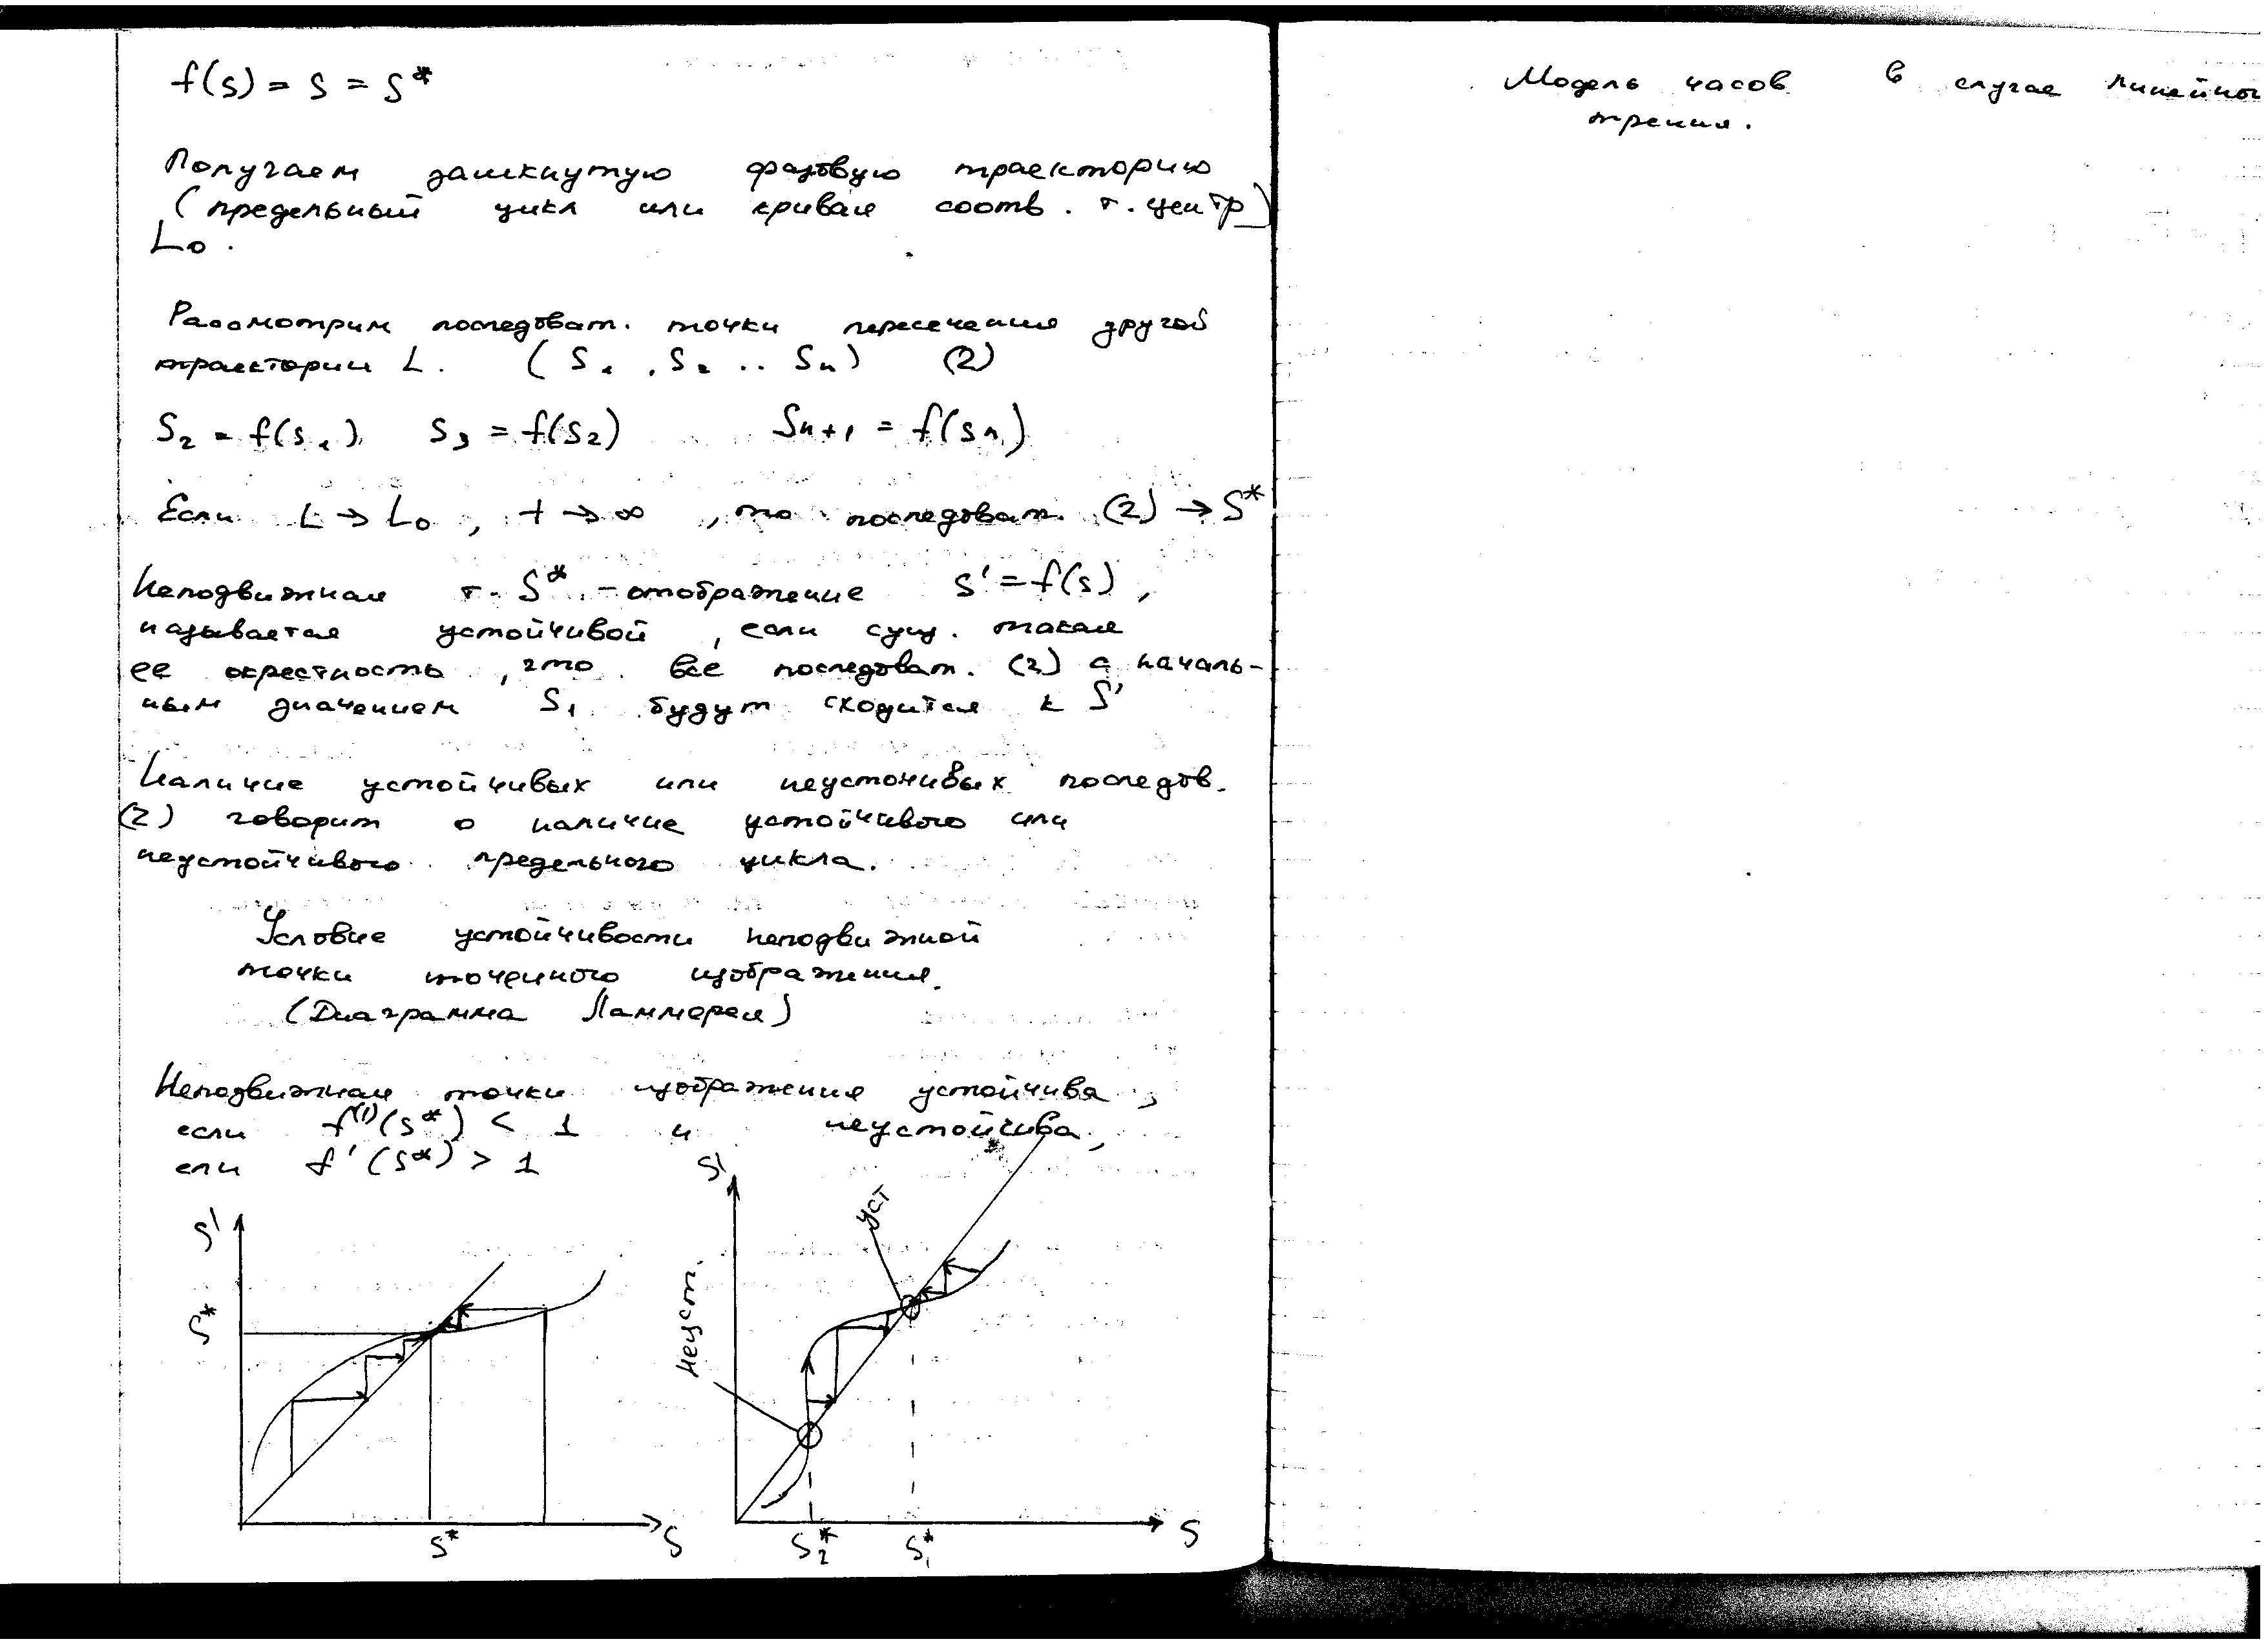 f(s) = s = s*
Получаем замкнутую фазовую траекторию
(предельный цикл или кривая соотв. т. центр)
L₀.
Рассмотрим последоват. точки пересечения другой
траектории L. (S₁, S₂ .. Sn) (2)
S₂ = f(s₁) S₃ = f(S₂) Sn+1 = f(sn)
Если L → L₀, t → ∞, то последоват. (2) → S*
Неподвижная т. S* - отображение s' = f(s),
называется устойчивой, если сущ. такая
ее окрестность, что все последоват. (2) с началь-
ным значением S₁ будут сходится к S'
Наличие устойчивых или неусточивых последов.
(2) говорит о наличие устойчивого или
неустойчивого предельного цикла.
Условие устойчивости неподвижной
точки точечного изображения.
(Диаграмма Ламмерея)
Неподвижная точки изображения устойчива,
если f⁽¹⁾(s*) < 1 и неустойчива,
если f'(s*) > 1
S'
S*
S*
S
S'
Неуст.
уст
S₂*
S₁*
S
Модель часов в случае линейног
трения.